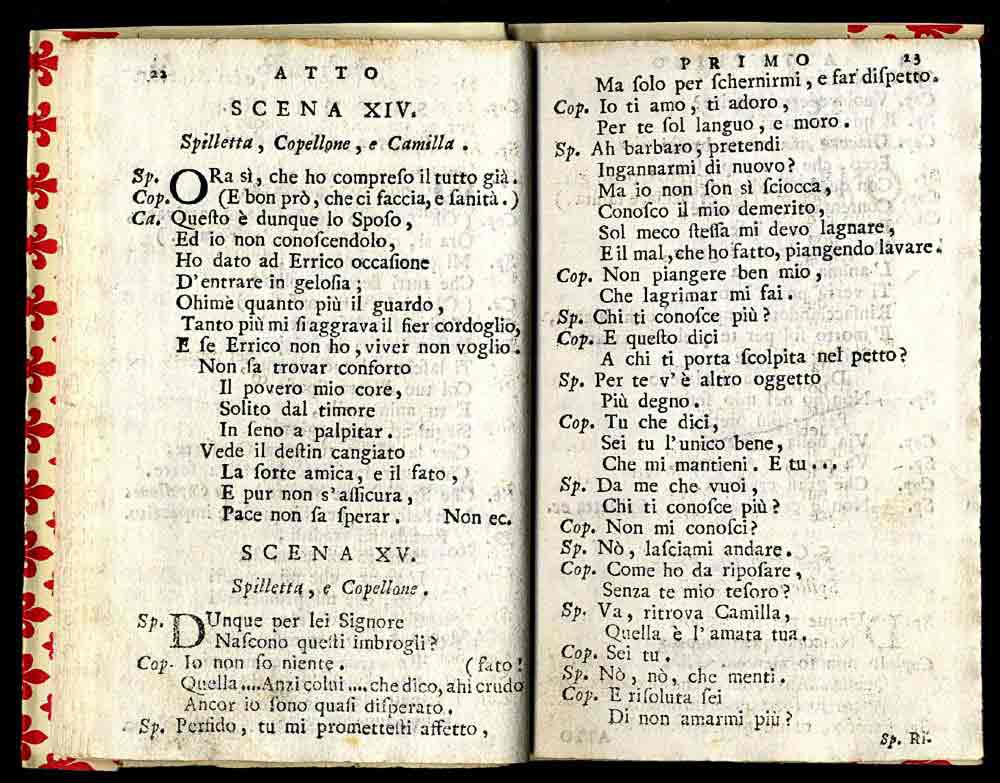 22 ATTO
SCENA XIV.
Spilletta, Copellone, e Camilla.
Sp. ORa sì, che ho compreſo il tutto già.
Cop. (E bon prò, che ci faccia, e ſanità.)
Ca. Queſto è dunque lo Spoſo,
Ed io non conoſcendolo,
Ho dato ad Errico occaſione
D'entrare in geloſia;
Ohimè quanto più il guardo,
Tanto più mi ſi aggrava il fier cordoglio,
E ſe Errico non ho, viver non voglio.
Non ſa trovar conforto
Il povero mio core,
Solito dal timore
In ſeno a palpitar.
Vede il deſtin cangiato
La ſorte amica, e il fato,
E pur non s'aſſicura,
Pace non ſa ſperar. Non ec.
SCENA XV.
Spilletta, e Copellone.
Sp. DUnque per lei Signore
Naſcono queſti imbrogli?
Cop. Io non ſo niente. (fato!
Quella....Anzi colui....che dico, ahi crudo
Ancor io ſono quaſi diſperato.
Sp. Perfido, tu mi prometteſti affetto,
PRIMO 23
Ma ſolo per ſchernirmi, e far diſpetto.
Cop. Io ti amo, ti adoro,
Per te ſol languo, e moro.
Sp. Ah barbaro, pretendi
Ingannarmi di nuovo?
Ma io non ſon sì ſciocca,
Conoſco il mio demerito,
Sol meco ſteſſa mi devo lagnare,
E il mal, che ho fatto, piangendo lavare.
Cop. Non piangere ben mio,
Che lagrimar mi fai.
Sp. Chi ti conoſce più?
Cop. E queſto dici
A chi ti porta ſcolpita nel petto?
Sp. Per te v'è altro oggetto
Più degno.
Cop. Tu che dici,
Sei tu l'unico bene,
Che mi mantieni. E tu...
Sp. Da me che vuoi,
Chi ti conoſce più?
Cop. Non mi conoſci?
Sp. Nò, laſciami andare.
Cop. Come ho da ripoſare,
Senza te mio teſoro?
Sp. Va, ritrova Camilla,
Quella è l'amata tua.
Cop. Sei tu.
Sp. Nò, nò, che menti.
Cop. E riſoluta ſei
Di non amarmi più?
Sp. Ri-